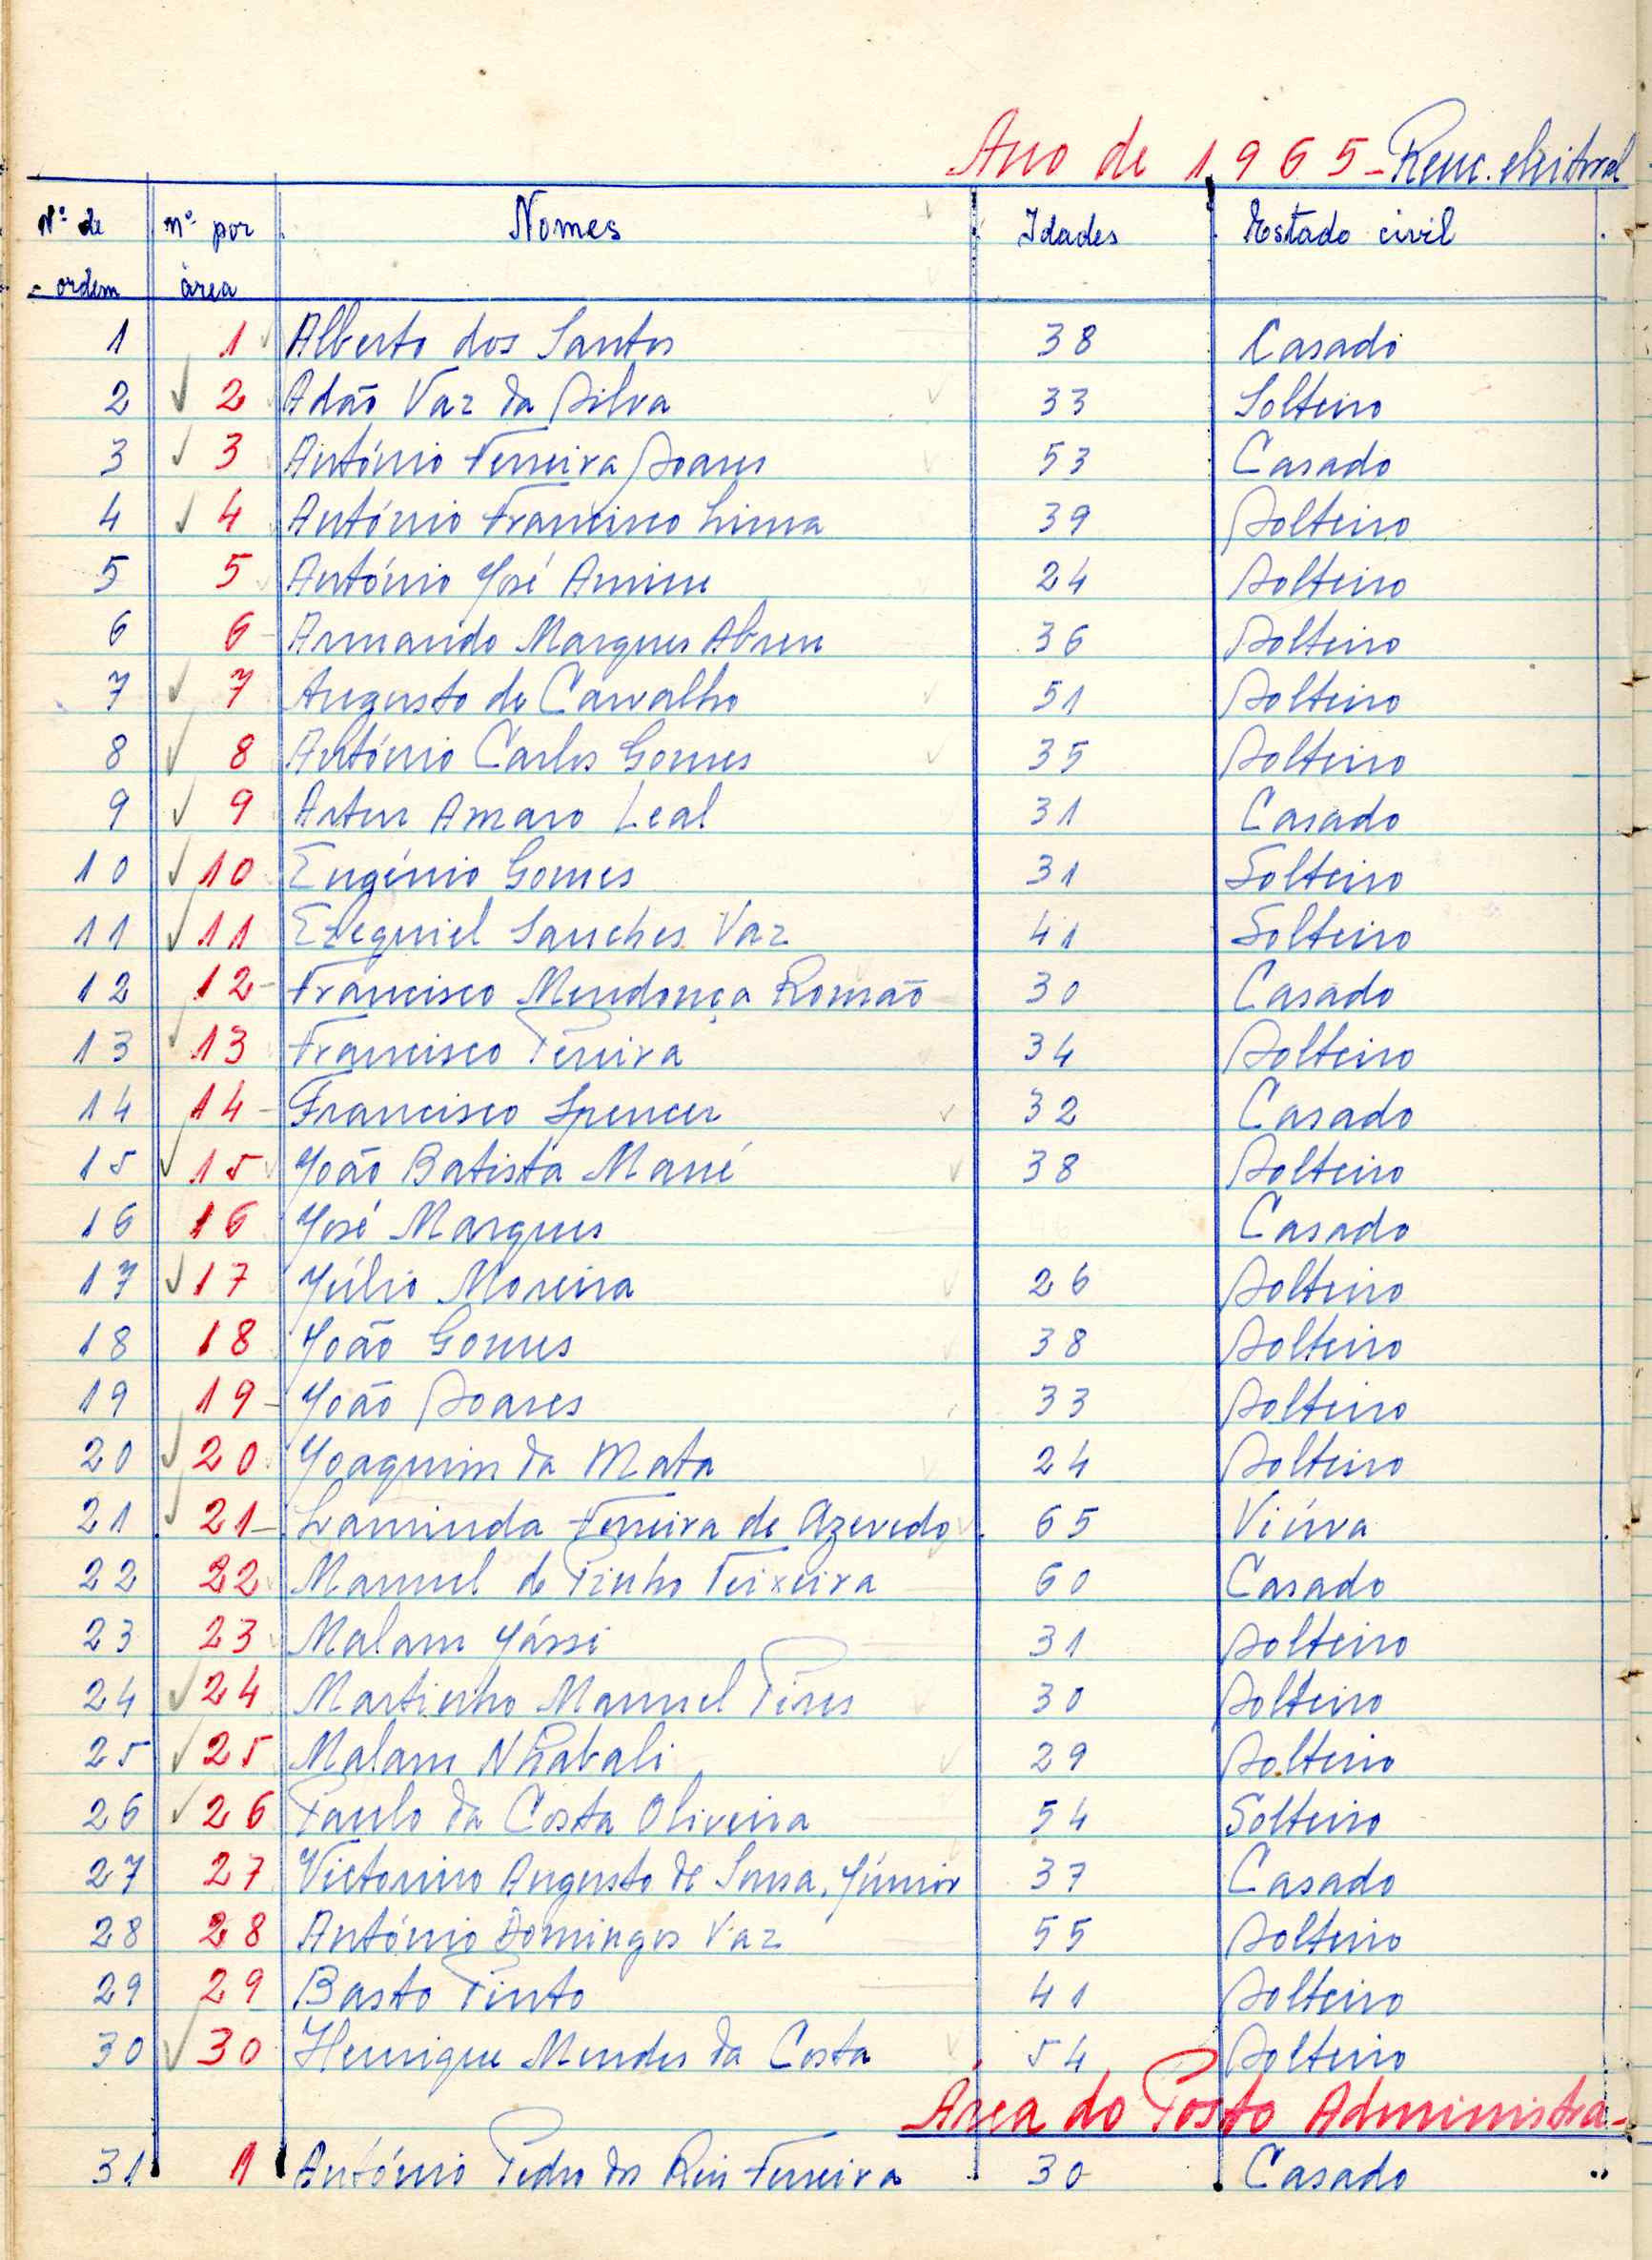 Ano de 1965 - Renc. eleitoral
Nº de ordem nº por área Nomes Idades Estado civil
1 1 Alberto dos Santos 38 Casado
2 2 Adão Vaz da Silva 33 Solteiro
3 3 António Ferreira Soares 53 Casado
4 4 António Francisco Lima 39 Solteiro
5 5 António José Amine 24 Solteiro
6 6 Armando Marques Abreu 36 Solteiro
7 7 Augusto de Carvalho 51 Solteiro
8 8 António Carlos Gomes 35 Solteiro
9 9 Artur Amaro Leal 31 Casado
10 10 Eugénio Gomes 31 Solteiro
11 11 Ezequiel Sanches Vaz 41 Solteiro
12 12 Francisco Mendonça Romão 30 Casado
13 13 Francisco Pereira 34 Solteiro
14 14 Francisco Spencer 32 Casado
15 15 João Batista Mané 38 Solteiro
16 16 José Marques Casado
17 17 Júlio Moreira 26 Solteiro
18 18 João Gomes 38 Solteiro
19 19 João Soares 33 Solteiro
20 20 Joaquim da Mata 24 Solteiro
21 21 Laminda Ferreira de Azevedo 65 Viúva
22 22 Manuel de Pinho Teixeira 60 Casado
23 23 Malam Jássi 31 Solteiro
24 24 Martinho Manuel Pires 30 Solteiro
25 25 Malam Nhabali 29 Solteiro
26 26 Paulo da Costa Oliveira 54 Solteiro
27 27 Victorino Augusto de Sousa Júnior 37 Casado
28 28 António Domingos Vaz 55 Solteiro
29 29 Basto Pinto 41 Solteiro
30 30 Henrique Mendes da Costa 54 Solteiro
Área do Posto Administra-
31 1 António Pedro dos Reis Ferreira 30 Casado